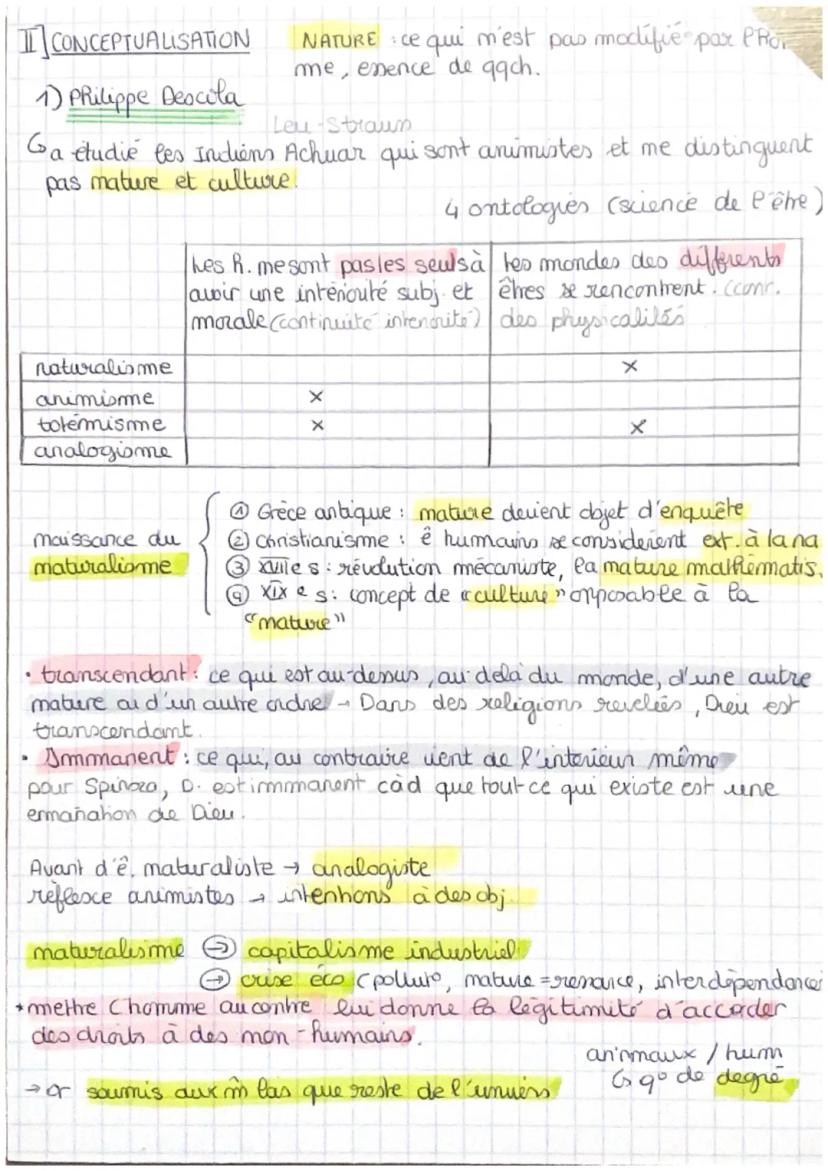 II] CONCEPTUALISATION
NATURE : ce qui n'est pas modifié par l'Ho
me, essence de qqch.
1) Philippe Descola
Leu-Strauss
↳ a étudié les Indiens Achuar qui sont animistes et ne distinguent
pas nature et culture.
4 ontologies (science de l'être)
Les h. ne sont pas les seuls à
avoir une intériorité subj. et
morale (continuité intériorité)
les mondes des différents
êtres se rencontrent. (con.
des physicalités
naturalisme x
animisme x
totémisme x x
analogisme
naissance du
naturalisme
① Grèce antique : nature devient objet d'enquête
② christianisme : ê humains se considèrent ext. à la na
③ XVIIe s : révolution mécaniste, la nature mathématis.
④ XIX e s : concept de "culture" opposable à la
"nature"
• transcendant : ce qui est au-dessus, au delà du monde, d'une autre
nature ou d'un autre ordre → Dans des religions revelées, Dieu est
transcendant.
• Immanent : ce qui, au contraire vient de l'intérieur même
pour Spinoza, D. est immanent càd que tout ce qui existe est une
emanation de Dieu.
Avant d'ê. naturaliste → analogiste
réflexe animistes → intentions à des obj.
naturalisme → capitalisme industriel
→ crise éco (polluto, nature = ressource, interdépendance
* mettre l'homme au centre lui donne la légitimité d'accorder
des droits à des non-humains.
animaux / hum
↳ q° de degré
→ or soumis aux m̂ las que reste de l'univers